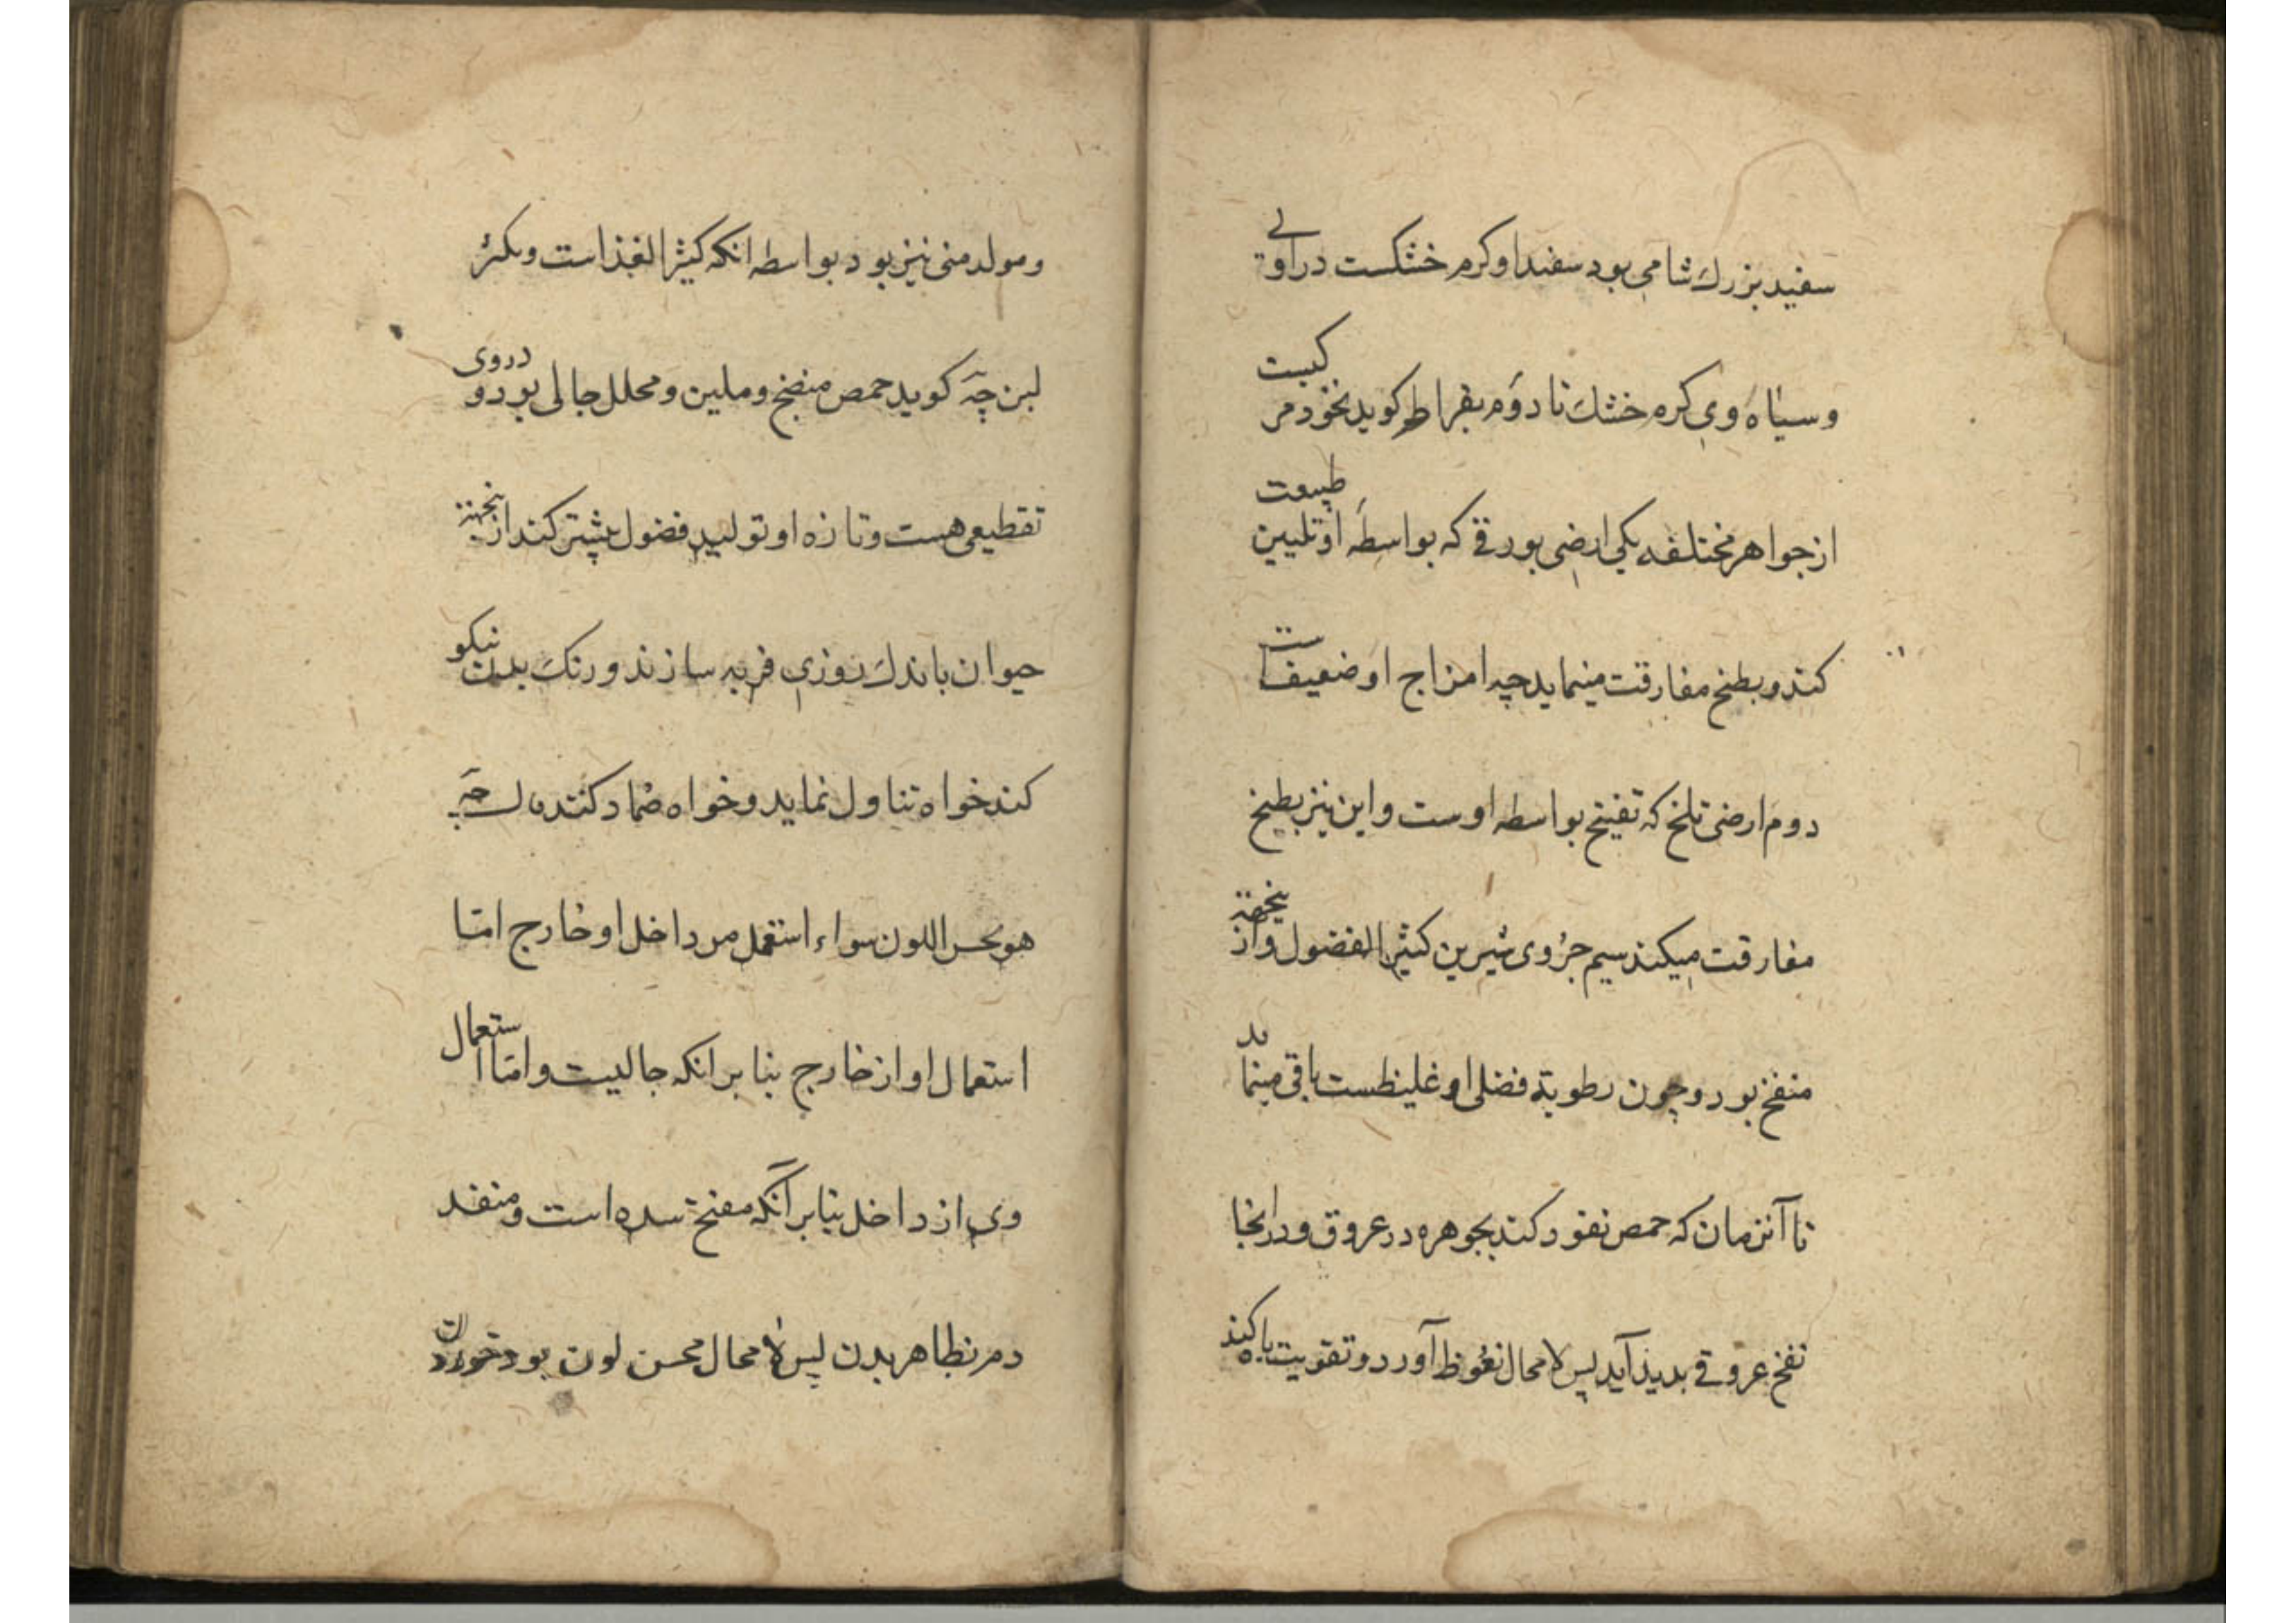 سفید بزرك شامی بود سفید او کرم خشکست در اولی
و سیاه وی کرم خشك تا دوم بقراط کوید نخود مرکبست
از جواهر مختلفه یکی ارضی بورقی که بواسطه او تلیین طبیعت
کند و بطبخ مفارقت مینماید چه امزاج او ضعیفست
دوم ارضی تلخ که تفتیح بواسطه اوست و این نیز بطبخ
مفارقت میکند سیم جزوی شیرین کثیر الفضول و از نیجهة
منفخ بود و چون رطوبة فضلی او غلیظست باقی مینماید
تا آنزمان که حمص نفوذ کند بجوهره در عروق و در آنجا
نفخ عروقی بدید آید پس لا محال نغوظ آورد و تقویت باه کند
و مولد منی نیز بود بواسطه انکه کثیر الغذاست و
لبن چه کوید حمص منضج و ملین و محلل جالی بود و در وی
تقطیعی هست و تازه او تولید فضول بیشتر کند ازنجهة
حیوان باندك روزی فربه سازند و رنك بدن نیکو
کند خواه تناول نماید و خواه ضماد کنند قال چه
هو یحسن اللون سواء استعمل من داخل او خارج امّا
استعمال او از خارج بنا بر انکه جالیست و امّا استعمال
وی از داخل بنا بر آنکه مفتح سده است و منفد
دم بظاهر بدن پس لا محال محسن لون بود خوردن